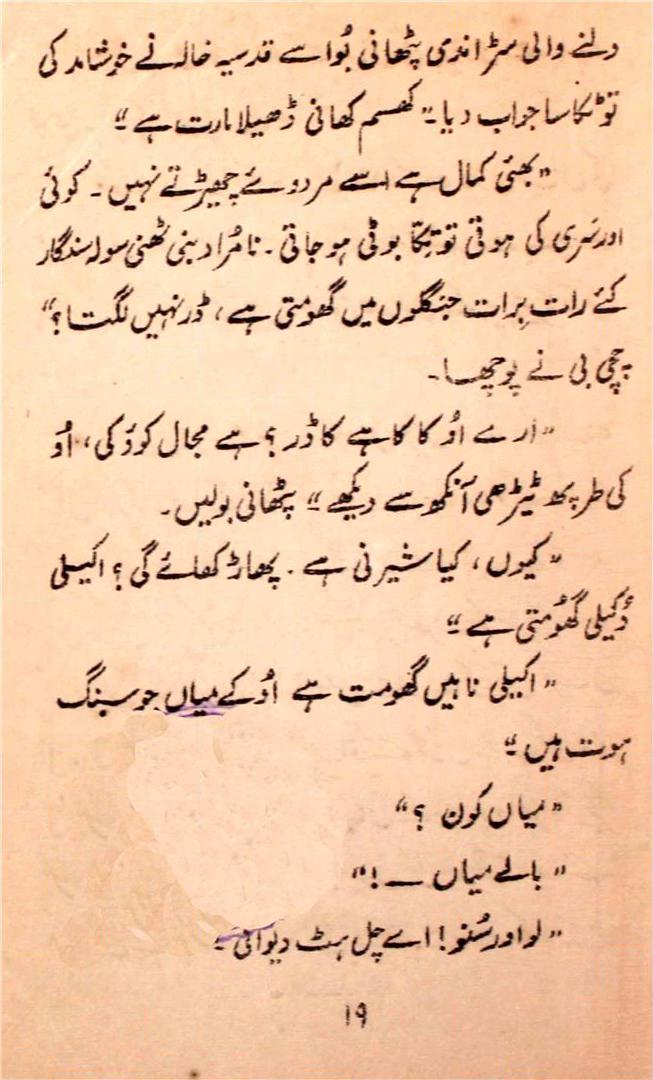 دلنے والی سڑاندی پٹھانی بُوا سے قدسیہ خالہ نے خوشامد کی
تو ٹکا سا جواب دیا۔ "کھسم کھانی ڈھیلا مارت ہے"
"بھئی کمال ہے اسے مردوئے چھیڑتے نہیں۔ کوئی
اور نَری کی ہوتی تو تِکّا بوٹی ہو جاتی۔ نامُراد بنی ٹھنی سولہ سنگار
کئے رات بِرات جنگلوں میں گھومتی ہے، ڈر نہیں لگتا؟"
چچی بی نے پوچھا۔
"ارے اُو کا کاہے کا ڈر؟ ہے مجال کوؤ کی، اُو
کی طرپھ ٹیڑھی آنکھ سے دیکھے" پٹھانی بولیں۔
"کیوں، کیا شیرنی ہے۔ پھاڑ کھائے گی؟ اکیلی
دُکیلی گھُومتی ہے"
"اکیلی ناہیں گھومت ہے اُو کے میاں جو سنگ
ہوت ہیں"
"میاں کون؟"
"بالے میاں —!"
"لو اور سُنو! اے چل ہٹ دیوانی۔
۱۹